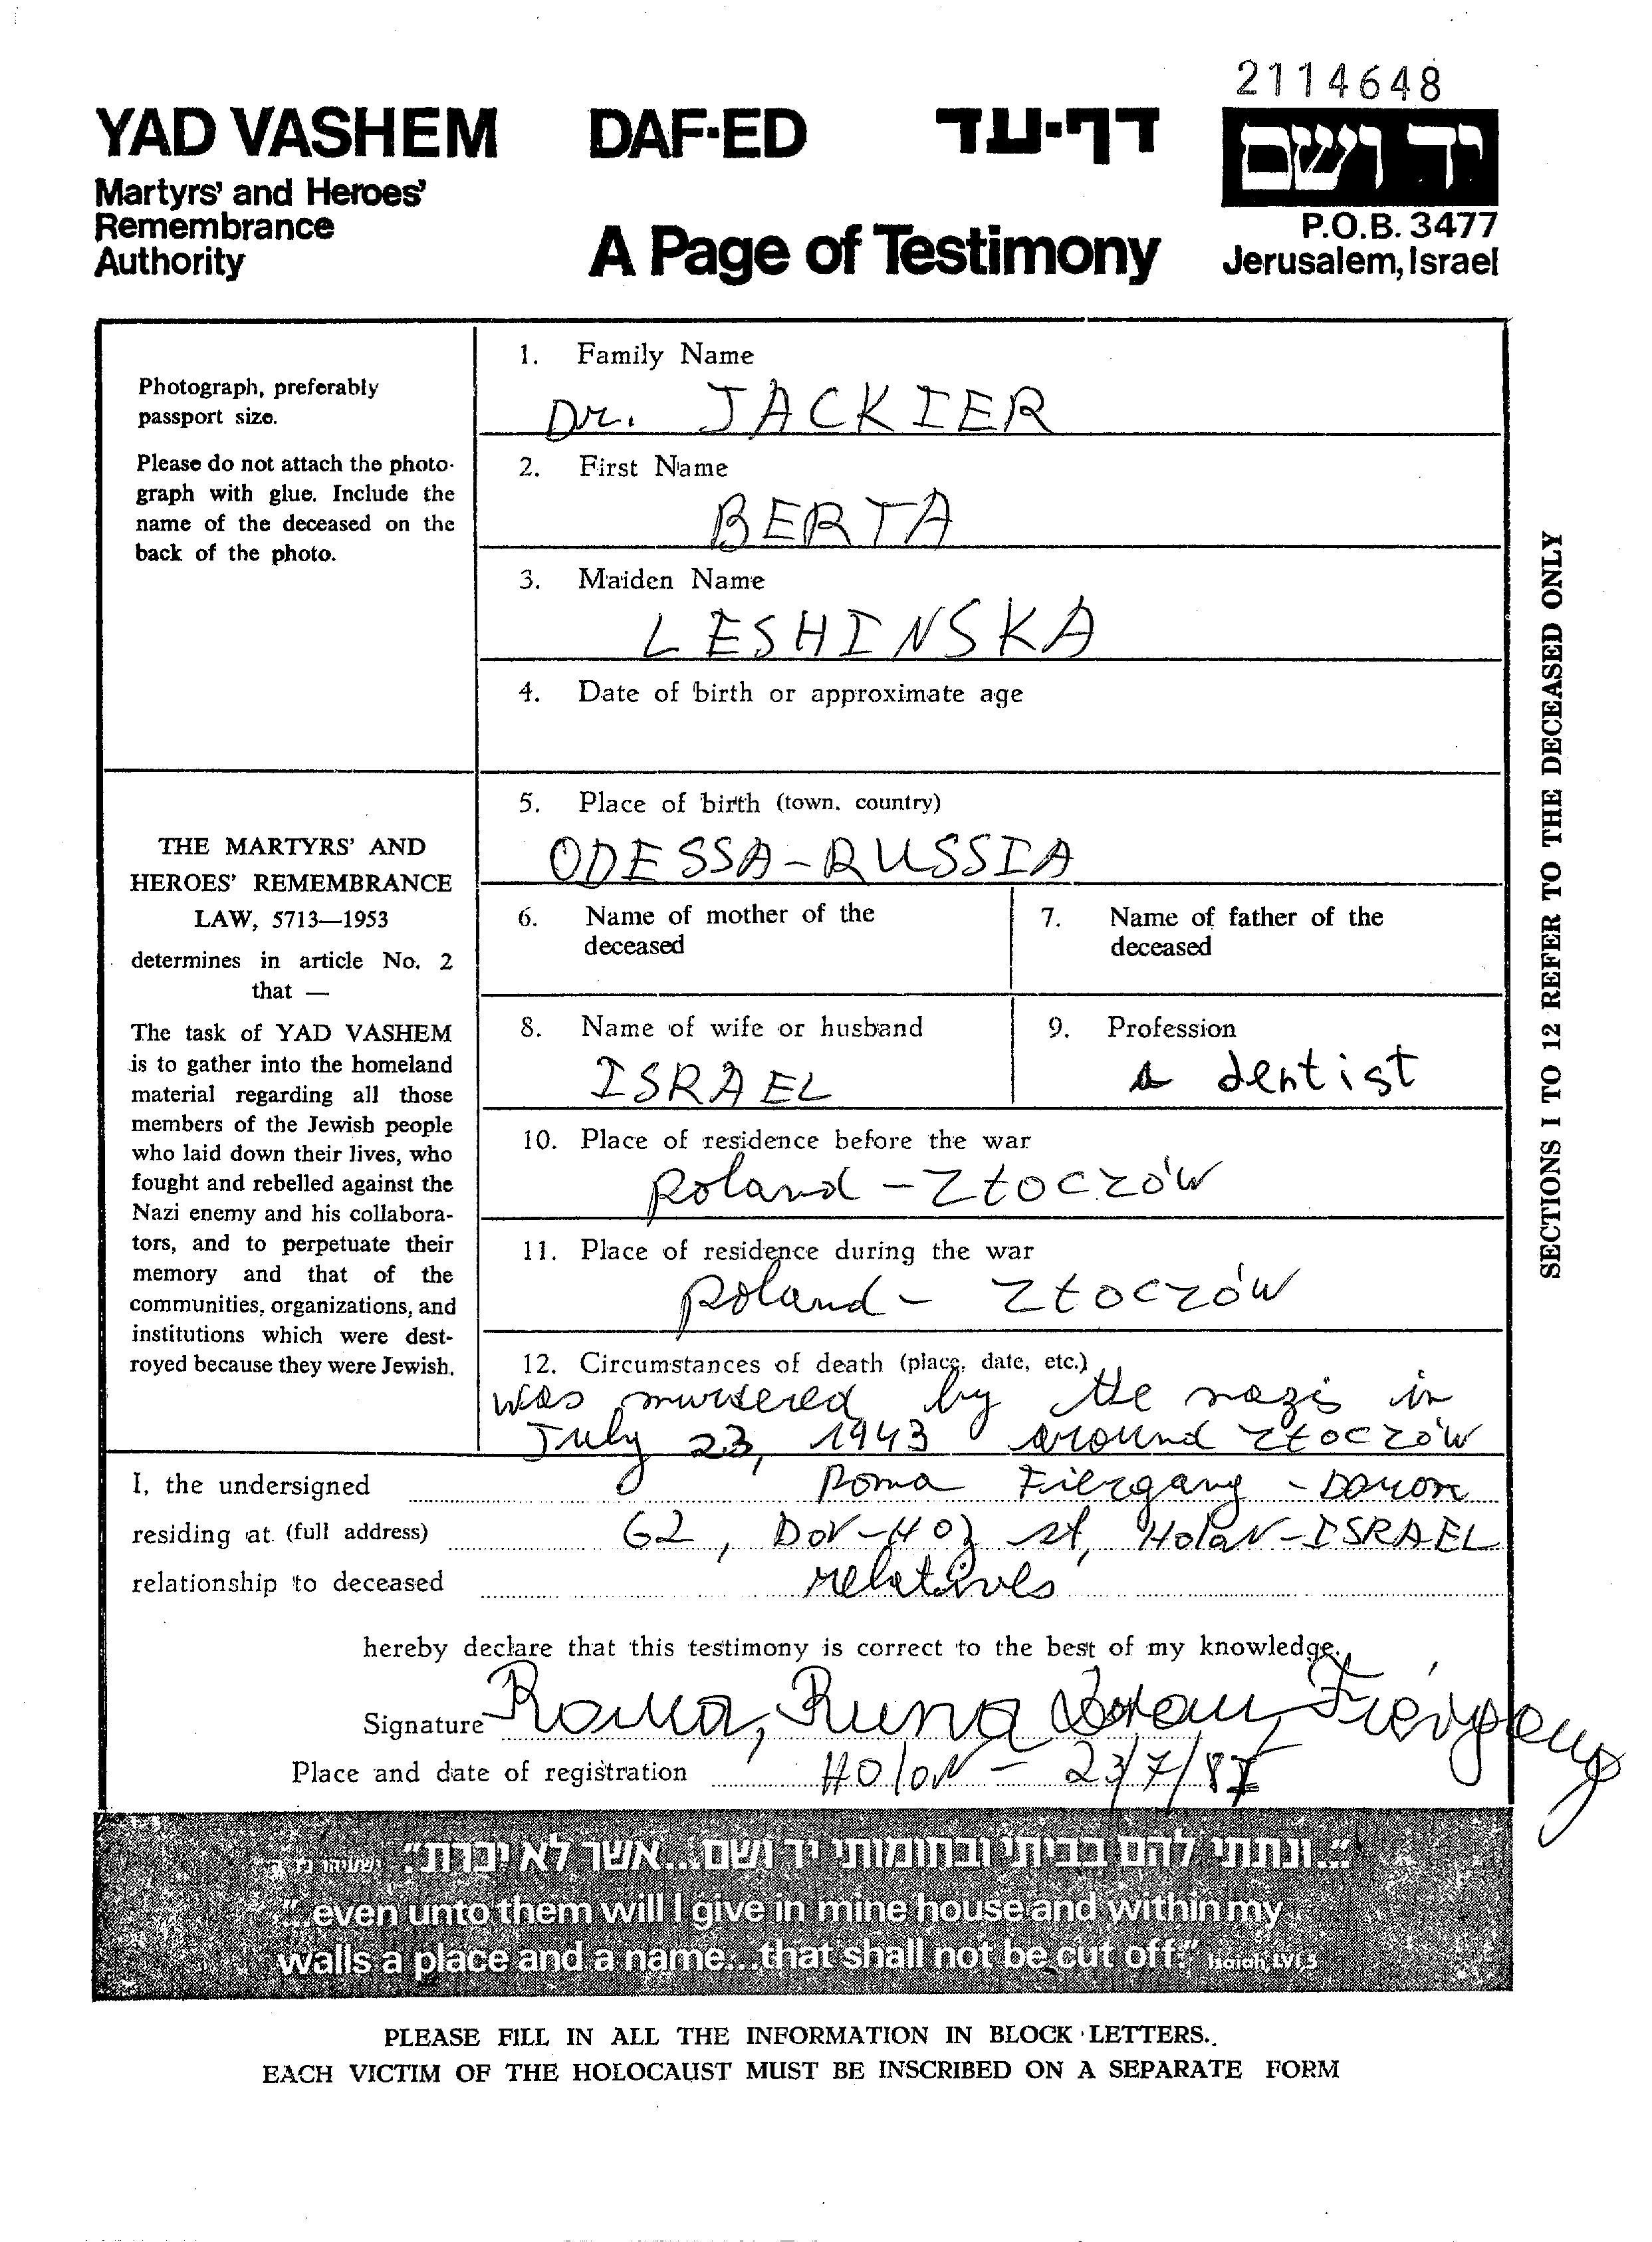 2114648
YAD VASHEM DAF-ED דף-עד יד ושם
Martyrs' and Heroes'
Remembrance
Authority
A Page of Testimony
P.O.B. 3477
Jerusalem, Israel
Photograph, preferably
passport size.
Please do not attach the photo-
graph with glue. Include the
name of the deceased on the
back of the photo.
1. Family Name
Dr. JACKIER
2. First Name
BERTA
3. Maiden Name
LESHINSKA
4. Date of birth or approximate age
THE MARTYRS' AND
HEROES' REMEMBRANCE
LAW, 5713—1953
determines in article No. 2
that —
The task of YAD VASHEM
is to gather into the homeland
material regarding all those
members of the Jewish people
who laid down their lives, who
fought and rebelled against the
Nazi enemy and his collabora-
tors, and to perpetuate their
memory and that of the
communities, organizations, and
institutions which were dest-
royed because they were Jewish.
5. Place of birth (town, country)
ODESSA-RUSSIA
6. Name of mother of the
deceased
7. Name of father of the
deceased
8. Name of wife or husband
ISRAEL
9. Profession
a dentist
10. Place of residence before the war
Poland - Złoczów
11. Place of residence during the war
Poland - Złoczów
12. Circumstances of death (place, date, etc.)
was mursered by the nazis in
July 23, 1943 around Złoczów
SECTIONS 1 TO 12 REFER TO THE DECEASED ONLY
I, the undersigned Roma Fiergang - Doron
residing at (full address) 62, Dov-Hoz st, HoloN-ISRAEL
relationship to deceased relatives
hereby declare that this testimony is correct to the best of my knowledge.
Signature Roma, Runa Fiergang
Place and date of registration HoloN - 23/7/87
"...ונתתי להם בביתי ובחומותי יד ושם...אשר לא יכרת." ישעיהו
"...even unto them will I give in mine house and within my
walls a place and a name...that shall not be cut off." Isaiah, LVI,5
PLEASE FILL IN ALL THE INFORMATION IN BLOCK LETTERS.
EACH VICTIM OF THE HOLOCAUST MUST BE INSCRIBED ON A SEPARATE FORM